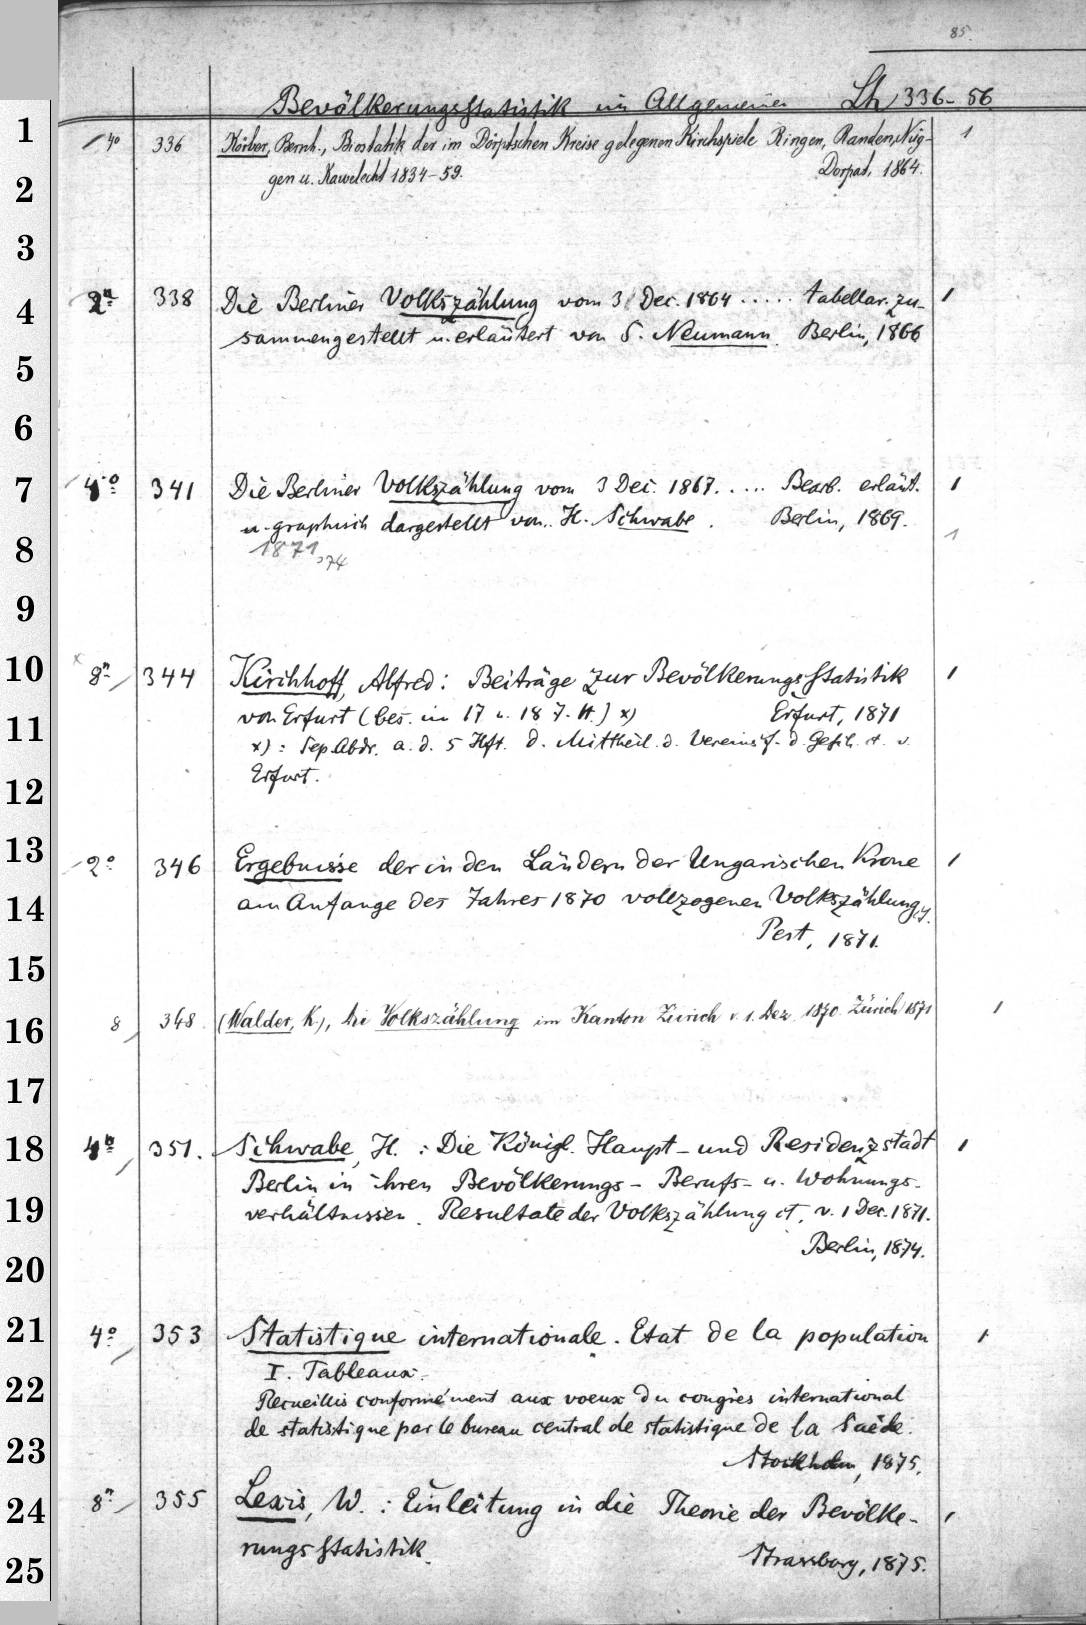 85.
Bevölkerungsstatistik im Allgemeinen Lh 336-56
1
4o 336 Körber, Bernh., Biostatik der im Dörptschen Kreise gelegenen Kirchspiele Ringen, Randen, Nüg- 1
2
gen u. Kawelecht 1834-59. Dorpat, 1864.
3
4
2o 338 Die Berliner Volkszählung vom 3 Dec. 1864 ..... tabellar. zu- 1
sammengestellt u. erläutert von S. Neumann. Berlin, 1866
5
6
7
4o 341 Die Berliner Volkszählung vom 3 Dec. 1867. .... Bearb. erläut. 1
u. graphisch dargestellt von.. H. Schwabe. Berlin, 1869.
8
1871, 74 1
9
10
x 8o 344 Kirchhoff, Alfred: Beiträge zur Bevölkerungsstatistik 1
von Erfurt (bes. im 17 u. 18 J. H.) x) Erfurt, 1871
11
x): Sep. Abdr. a. d. 5 Hft. d. Mittheil. d. Vereins f. d. Gesch. et. v.
Erfurt.
12
13
2o 346 Ergebnisse der in den Ländern der Ungarischen Krone 1
14
am Anfange des Jahres 1870 vollzogenen Volkszählung.
Pest, 1871.
15
16
8 348. (Walder, K.), Die Volkszählung im Kanton Zürich v. 1. Dez. 1870. Zürich 1871 1
17
18
4o 351. Schwabe, H. : Die Königl. Haupt- und Residenzstadt 1
Berlin in ihren Bevölkerungs- Berufs- u. Wohnungs-
19
verhältnissen. Resultate der Volkszählung et. v. 1 Dec. 1871.
Berlin, 1874.
20
21
4o 353 Statistique internationale. Etat de la population 1
I. Tableaux.
22
Recueillis conformément aux voeux du congrès international
de statistique par le bureau central de statistique de la Suède.
23
Stockholm, 1875.
24
8o 355 Lexis, W. : Einleitung in die Theorie der Bevölke- 1
rungsstatistik. Strassburg, 1875.
25